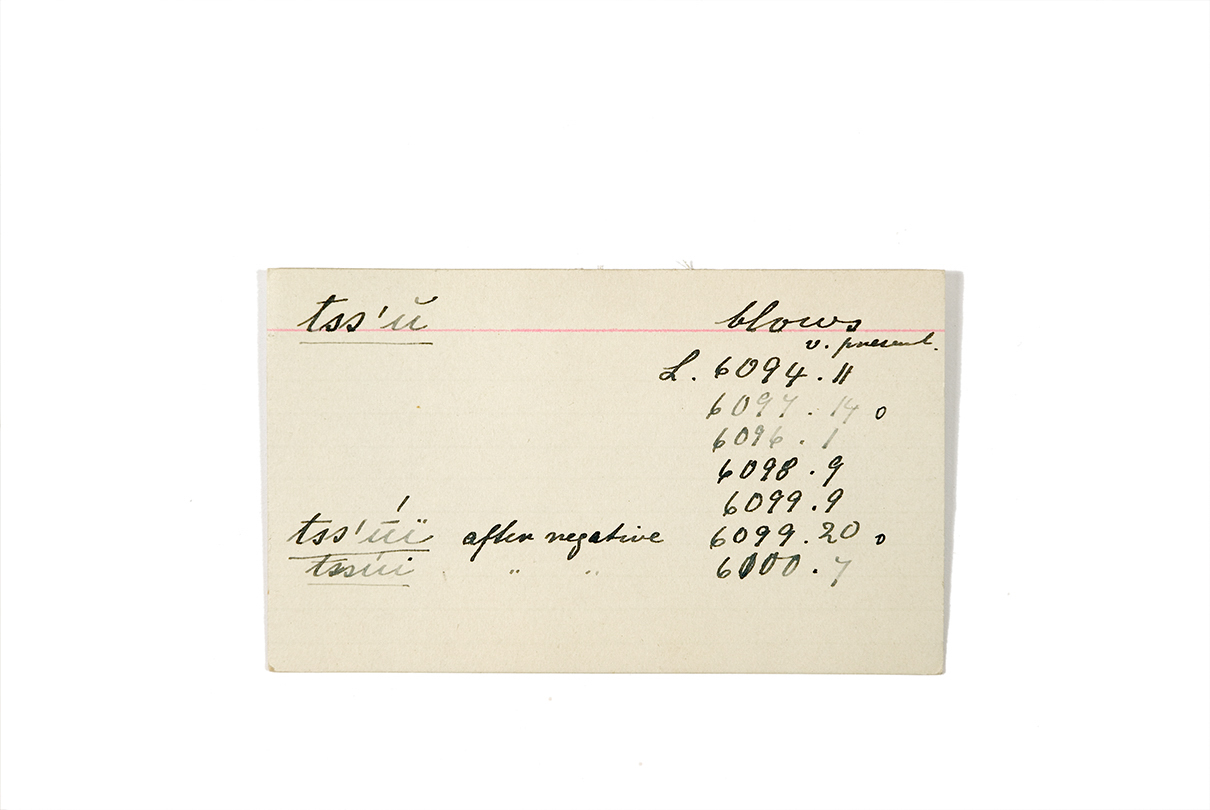 tss'ŭ blows
v. present.
L. 6094.11
6097.14 o
6096.1
6098.9
6099.9
tss'ū́ï after negative 6099.20 o
tssúi " " 6100.7